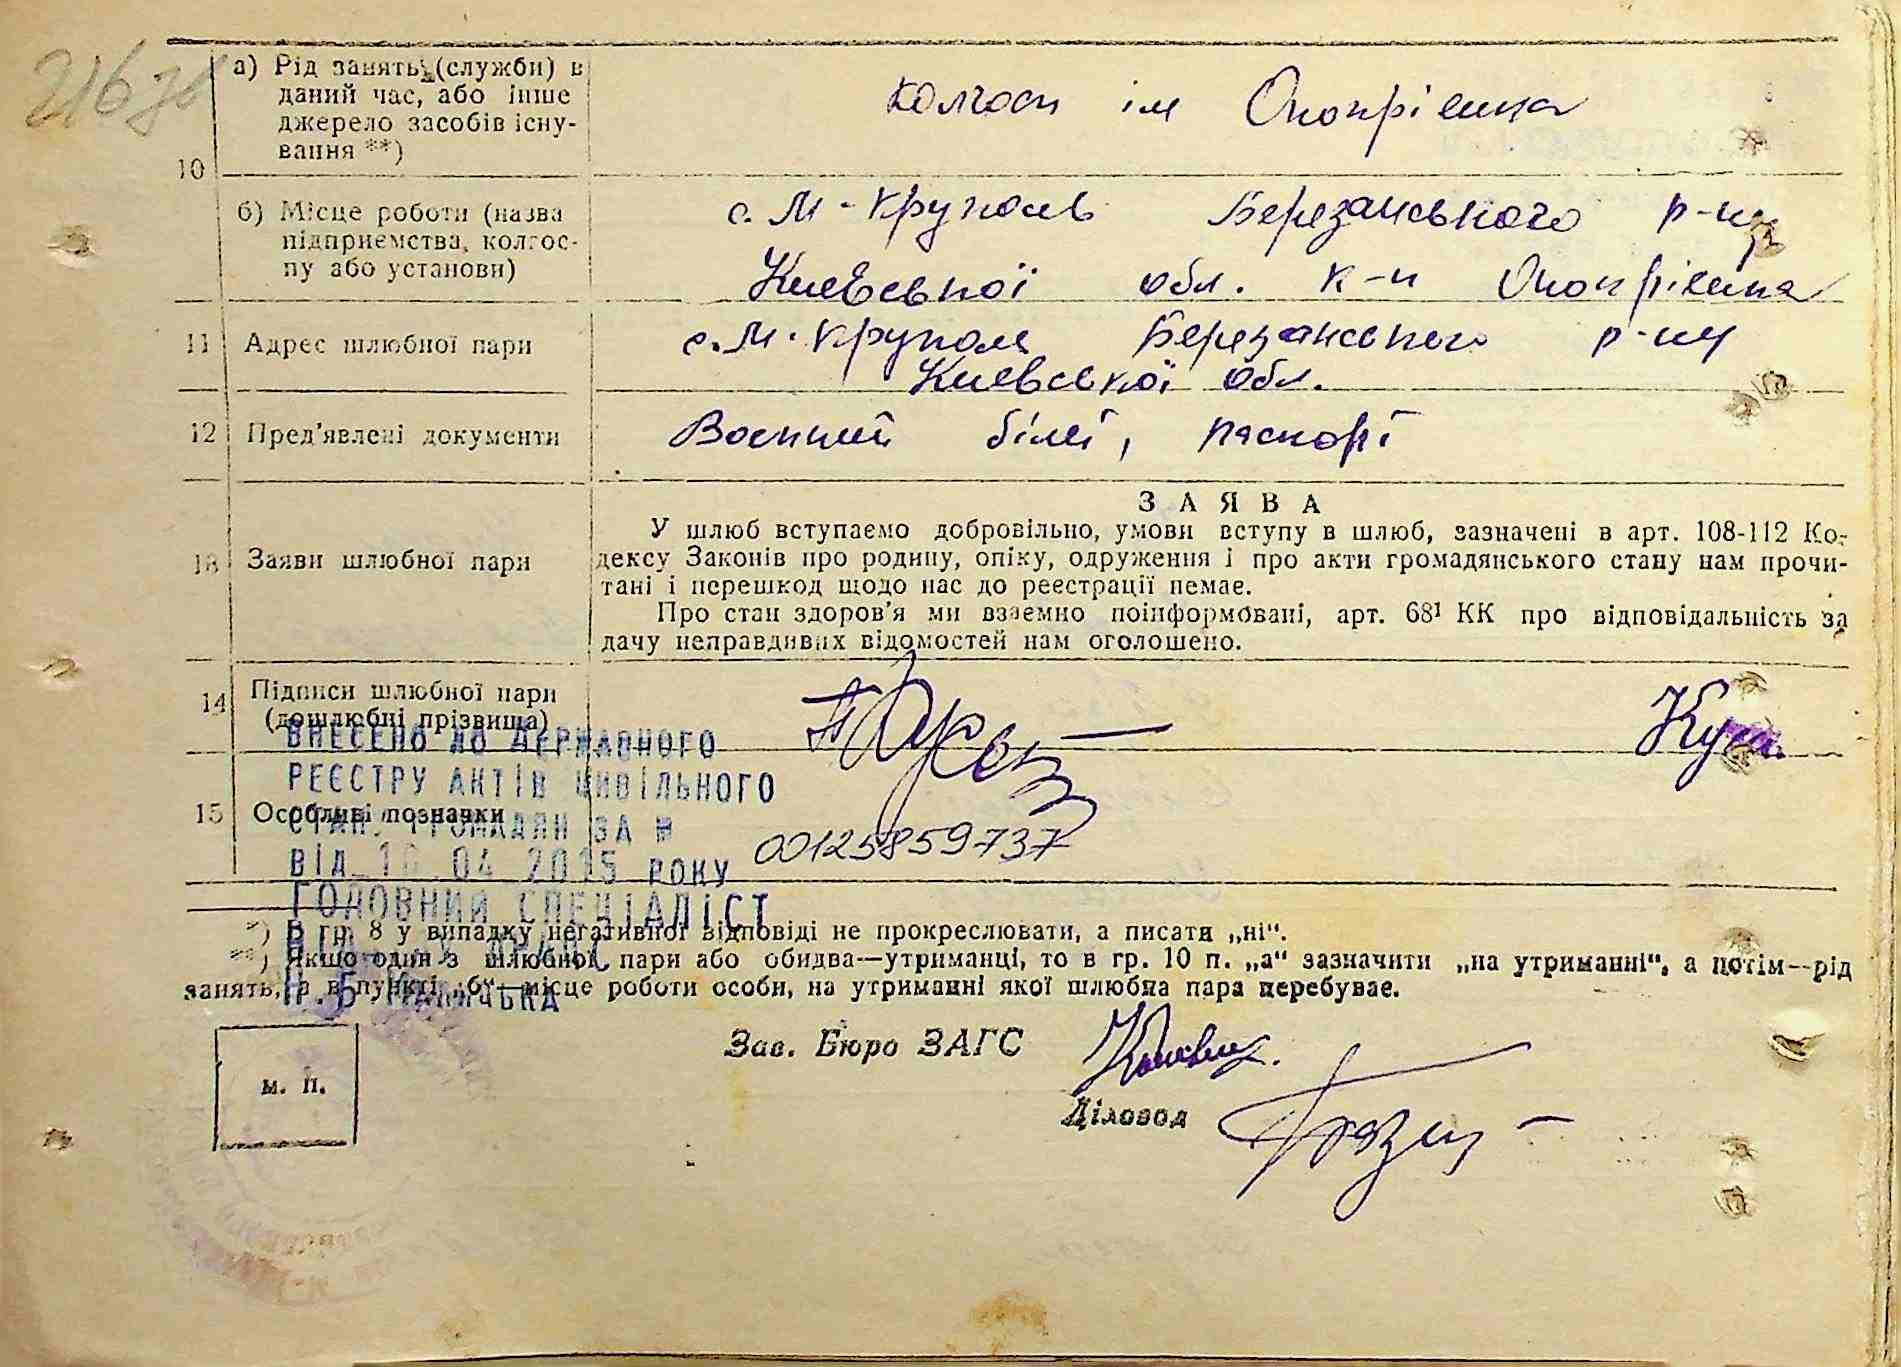 а) Рід занять (служби) в
даний час, або інше
джерело засобів існу-
вання **)
10
колгосп ім Онопрієнка
б) Місце роботи (назва
підприємства, колгос-
пу або установи)
с. М-Круполь Березанського р-ну
Киевської обл. к-п Онопрієнка
11 Адрес шлюбної пари
с. М-Круполь Березанського р-ну
Киевської обл.
12 Пред'явлені документи
Воєнний білєт, паспорт
13 Заяви шлюбної пари
ЗАЯВА
У шлюб вступаємо добровільно, умови вступу в шлюб, зазначені в арт. 108-112 Ко-
дексу Законів про родину, опіку, одруження і про акти громадянського стану нам прочи-
тані і перешкод щодо нас до реєстрації немає.
Про стан здоров'я ми взаємно поінформовані, арт. 68¹ КК про відповідальність за
дачу неправдивих відомостей нам оголошено.
14 Підписи шлюбної пари
(дошлюбні прізвища)
ВНЕСЕНО ДО ДЕРЖАВНОГО
РЕЄСТРУ АКТІВ ЦИВІЛЬНОГО
15 Особливі позначки
СТАН. ГРОМАДЯН ЗА №
00125859737
ВІД 04 2015 РОКУ
ГОЛОВНИЙ СПЕЦІАЛІСТ
*) В гр. 8 у випадку негативної відповіді не прокреслювати, а писати „ні“.
**) Якщо один з шлюбної пари або обидва—утриманці, то в гр. 10 п. „а“ зазначити „на утриманні“, а потім—рід
занять, а в пункті „б“—місце роботи особи, на утриманні якої шлюбна пара перебуває.
Зав. Бюро ЗАГС
м. п.
Діловод